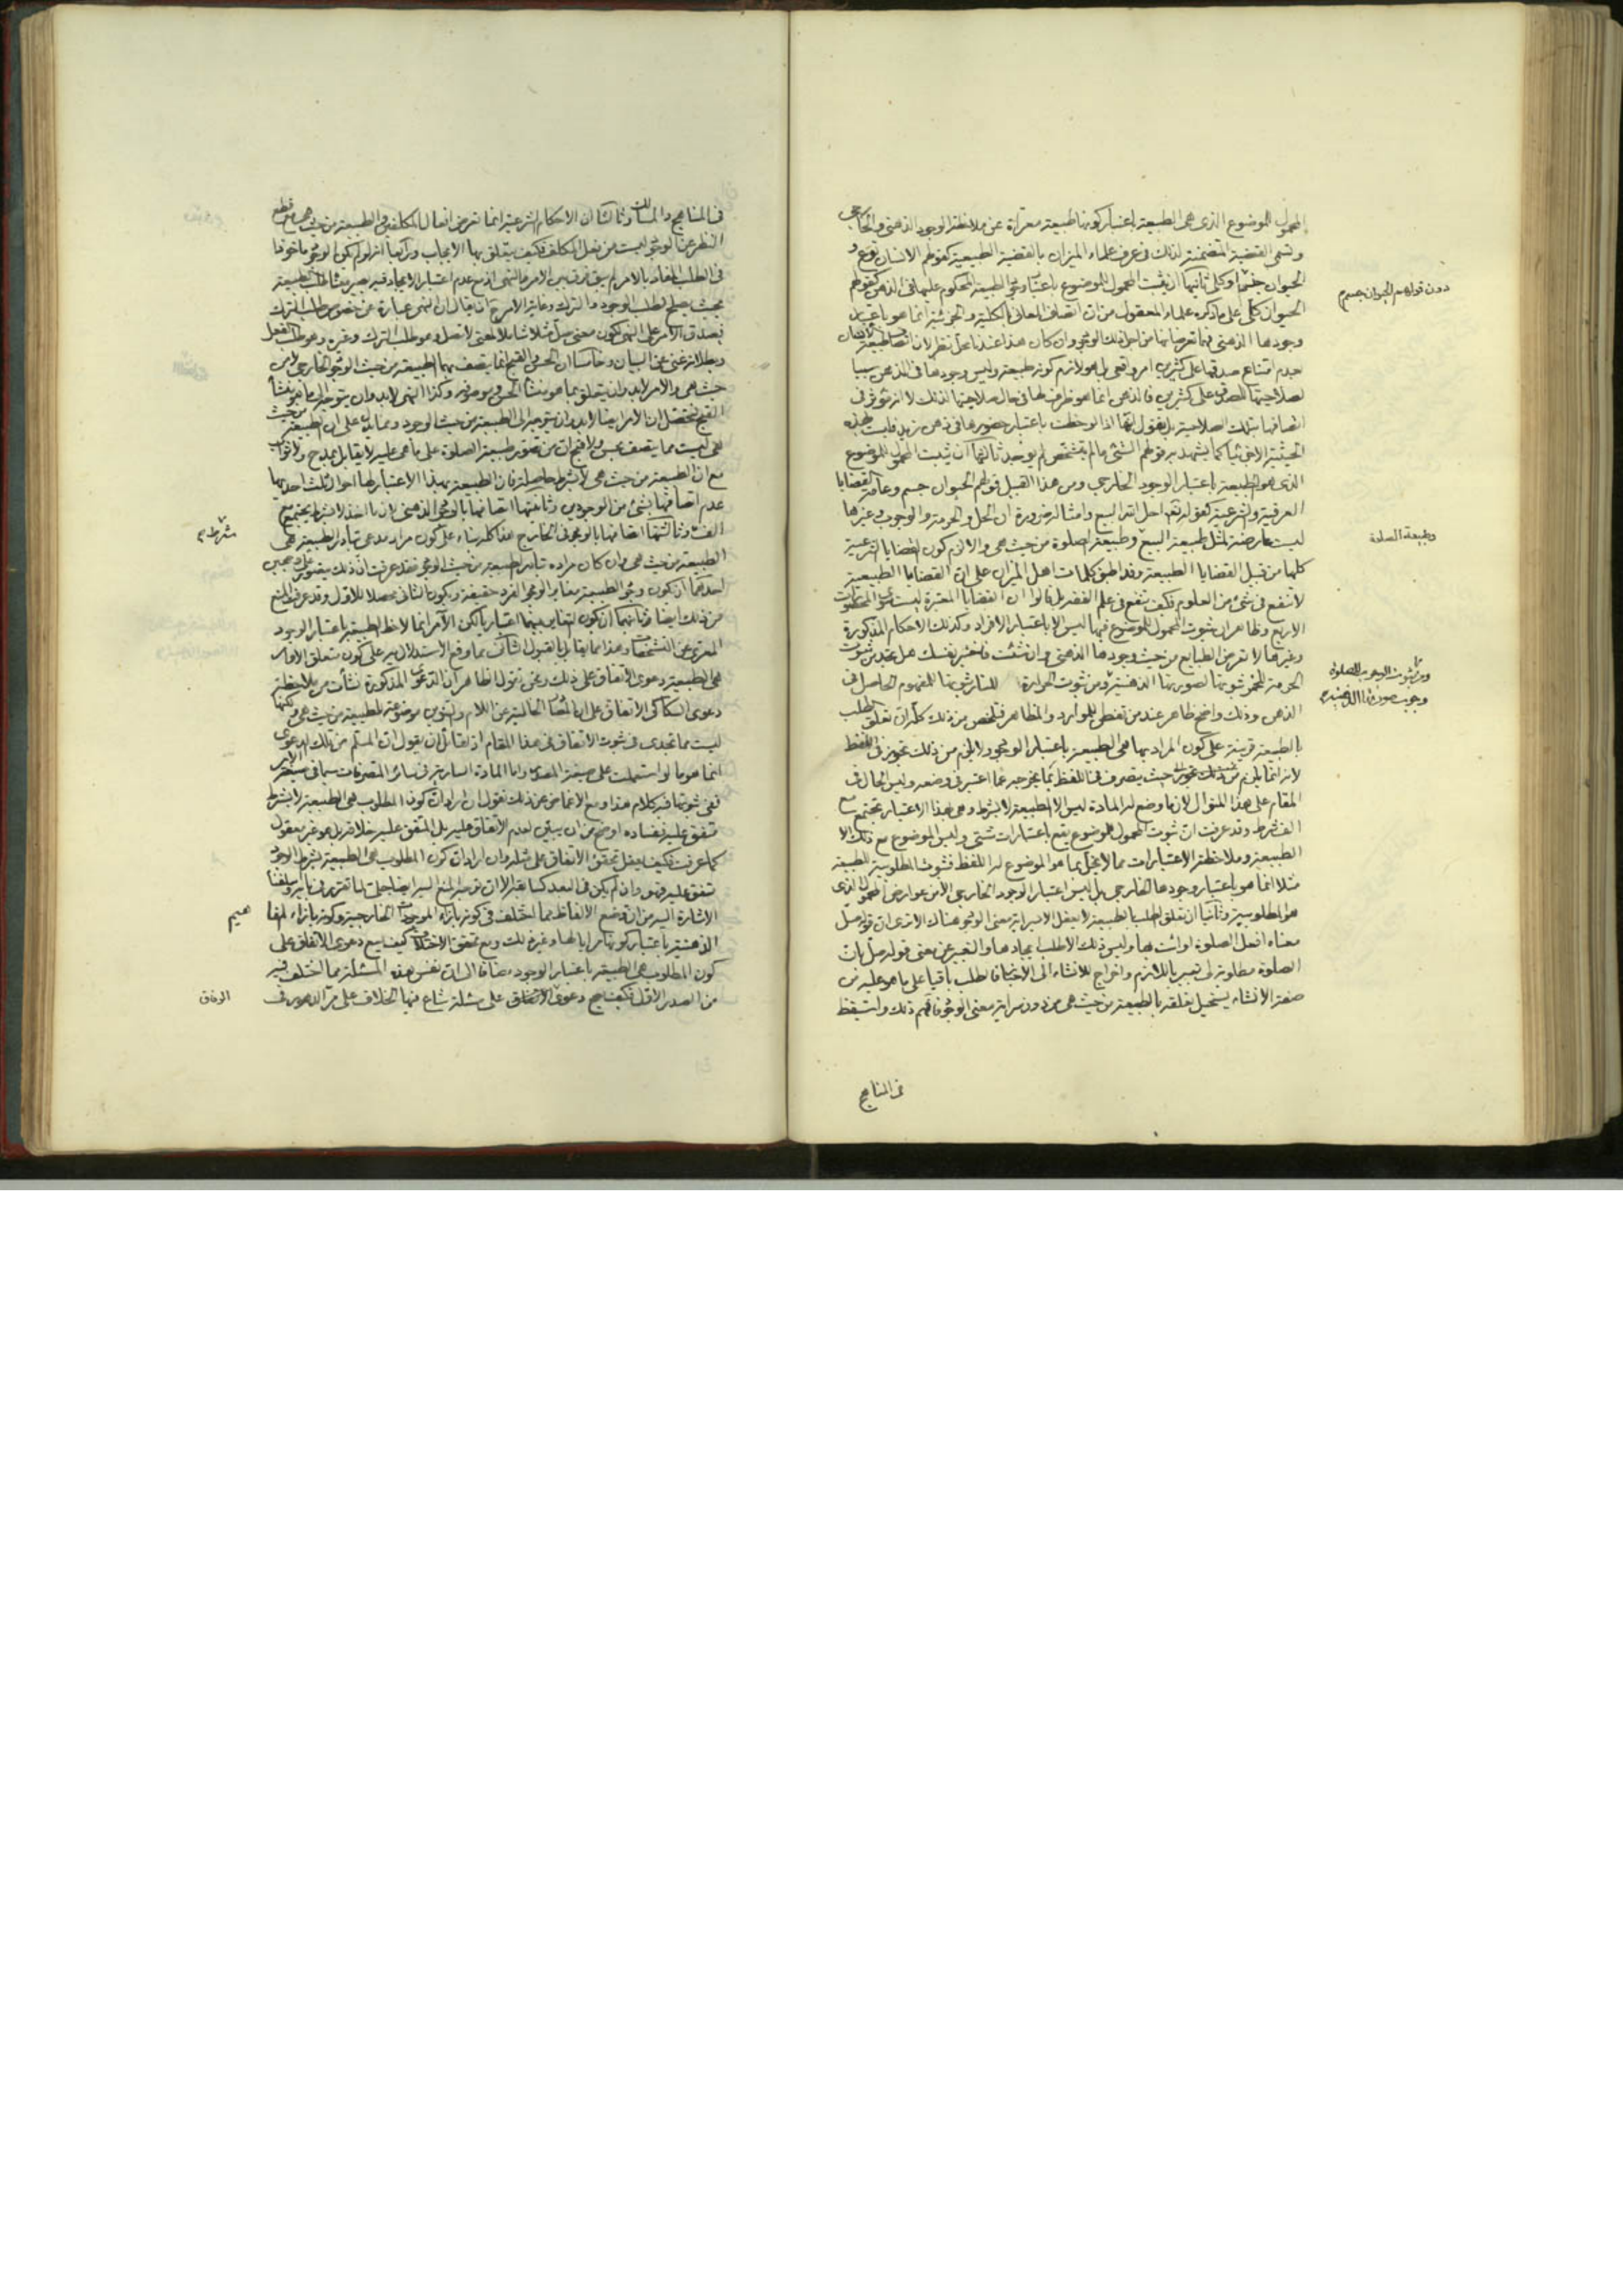 المحمول للموضوع الذي هي الطبيعة باعتبار كونها طبيعة معراة عن ملاحظة الوجود الذهني والخارجي
وتسمى القضية المتضمنة لذلك في عرف علماء الميزان بالقضية الطبيعية كقولهم الانسان نوع و
الحيوان جنس او كلي ثانيها ان يثبت المحمول للموضوع باعتبار وجود الطبيعة المحكوم عليها في الذهن كقولهم
الحيوان كلي على ما ذكره علماء المعقول من ان اتصاف المعاني بالكلية والجزئية انما هو باعتبار
وجودها الذهني
عدم امتناع صدقها على كثيرين امر واقعي لها هو لازم كونه طبيعة وليس وجودها في الذهن سببا
لصلاحيتها للصدق على كثيرين فالذهن انما هو ظرف لها في حال صلاحيتها لذلك لا انه مؤثر في
اتصافها بتلك الصلاحية بل نقول انها اذا لوحظت باعتبار حضورها في ذهن زيد
الحيثية الا جزئيا كما يشهد به قولهم الشئ ما لم يتشخص لم يوجد ثالثها ان يثبت المحمول للموضوع
الذي هو الطبيعة باعتبار الوجود الخارجي ومن هذا القبيل قولهم الحيوان جسم وعامة القضايا
العرفية والشرعية كقوله تعالى احل الله البيع وامثاله ضرورة ان الحل والحرمة والوجوب وغيرها
ليست عارضة لمثل طبيعة البيع وطبيعة الصلوة من حيث هي والا لزم كون القضايا الشرعية
كلها من قبيل القضايا الطبيعة وقد اطبق كلمات اهل الميزان على ان القضايا الطبيعية
لا تنفع في شئ من العلوم فكيف تنفع في علم الفقه بل قالوا ان القضايا المعتبرة ليست سوى المحصورات
الاربع وظاهر ان ثبوت المحمول للموضوع فيها ليس الا باعتبار الافراد وكذلك الاحكام المذكورة
وغيرها لا تعرض الطبايع من حيث وجودها الذهني وان شئت فاختبر نفسك هل تجد من ثبوت
الحرمة للخمر ثبوتها لصورتها الذهنية ومن ثبوت الحرارة للنار ثبوتها للمفهوم الحاصل في
الذهن وذلك واضح ظاهر عند من تفطن للموارد والمظاهر فتلخص من ذلك كله ان تعلق الطلب
بالطبيعة قرينة على كون المراد بها هي الطبيعة باعتبار الوجود ولا يلزم من ذلك تجوز في اللفظ
لانه انما يلزم من ذلك تجوز حيث يتصرف في اللفظ بما يخرجه عما اعتبر في وضعه وليس الحال في
المقام على هذا المنوال لان ما وضع له المادة ليس الا الطبيعة لا بشرط وهي بهذا الاعتبار تجتمع مع
الف شرط وقد عرفت ان ثبوت المحمول للموضوع يقع باعتبارات شتى وليس الموضوع مع ذلك الا
الطبيعة وملاحظة الاعتبارات مما لا يخل بما هو الموضوع له اللفظ فثبوت المطلوبية للطبيعة
مثلا انما هو باعتبار وجودها الخارجي بل ليس اعتبار الوجود الخارجي الا من عوارض المحمول الذي
هو المطلوبية وثانيا ان تعلق الطلب بالطبيعة لا يعقل الا بسراية معنى الوجود هناك الا ترى ان قوله صل
معناه افعل الصلوة او ائت بها وليس ذلك الا طلب ايجادها والتعبير عن معنى قوله صل بان
الصلوة مطلوبة لي تعبير باللازم واخراج للانشاء الى الاخبار فالطلب باقيا على ما هو عليه من
صفة الانشاء يستحيل تعلقه بالطبيعة من حيث هي من دون سراية معنى الوجود فافهم ذلك واستيقظ
في المناهج
دون قولهم الحيوان جسم
وطبيعة الصلوة
ومن ثبوت الوجوب للصلوة
وجوب صورتها الذهنية
في المناهج والمسالك وثالثا ان الاحكام الشرعية انما تعرض افعال المكلفين والطبيعة من حيث هي مع قطع
النظر عن الوجود ليست من فعل المكلف فكيف يتعلق بها الايجاب ورابعا انه لو لم يكن الوجود ماخوذا
في الطلب المفاد بالامر لم يبق فرق بين الامر والنهي اذ مع عدم اعتبار الايجاد فيه يصير مفاده طلب الطبيعة
بحيث يصلح لطلب الوجود والترك وغاية الامر ح ان يقال ان النهي عبارة عن خصوص طلب الترك
فيصدق الامر على النهي لكون معنى صل مثلا شاملا لمعنى لا تصل وهو طلب الترك وغيره وهو طلب الفعل
وبطلانه غني عن البيان وخامسا ان الحسن والقبح انما يتصف بهما الطبيعة من حيث الوجود الخارجي لا من
حيث هي والامر لابد وان يتعلق بما هو منشأ الحسن وموضوعه وكذا النهي لابد وان يتوجه الى ما هو منشأ
القبح فتحصل ان الامر ايضا لابد وان يتوجه الى الطبيعة من حيث الوجود ومما يدل على ان الطبيعة من حيث
هي ليست مما يتصف بحسن ولا قبح ان من تصور طبيعة الصلوة على ما هي عليه لا يقابل بمدح ولا ثواب
مع ان الطبيعة من حيث هي لا بشرط حاصلة فان الطبيعة بهذا الاعتبار لها احوال ثلث احديها
عدم اتصافها بشئ من الوجودين وثانيتها اتصافها بالوجود الذهني لان ما اخذ لا بشرط يجتمع مع
الف وثالثتها اتصافها بالوجود في الخارج هذا كله بناء على كون مراد مدعي تبادر الطبيعة هي
الطبيعة من حيث هي وان كان مراده تبادر الطبيعة من حيث الوجود فقد عرفت ان ذلك يتصور على وجهين
احدهما ان يكون وجود الطبيعة مغاير الوجود الفرد حقيقة ويكون الثاني محصلا للاول وقد عرفت المنع
من ذلك ايضا وثانيهما ان يكون التغاير بينهما اعتباريا لكن الآمر انما لاحظ الطبيعة باعتبار الوجود
المعرى عن التشخصات وهذا مما يقابل بالقبول الثالث مما وقع الاستدلال به على كون متعلق الاوامر
هي الطبيعة دعوى الاتفاق على ذلك ونحن نقول الظاهر ان الدعوى المذكورة نشأت من ملاحظة
دعوى السكاكي الاتفاق على ان المصادر الخالية عن اللام والتنوين موضوعة للطبيعة من حيث هي ولكنها
ليست مما تجدى في ثبوت الاتفاق في هذا المقام اذ لقائل ان يقول ان المسلم من تلك الدعوى
انما هو ما لو استعملت على صيغة المصدر واما المادة السارية في سائر المتصرفات سيما في صيغة الامر
ففي ثبوتها فيه كلام هذا ومع الاغماض عن ذلك نقول ان اراد ان كون المطلوب هي الطبيعة لا بشرط
متفق عليه ففساده اوضح من ان يبين لعدم الاتفاق عليه بل المتفق عليه خلافه بل هو غير معقول
كما عرفت فكيف يعقل تحقق الاتفاق على مثله وان اراد ان كون المطلوب هي الطبيعة بشرط الوجود
متفق عليه فهو وان لم يكن في البعد كسابقه الا ان توجه المنع اليه ايضا جلي
الاشارة اليه من ان وضع الالفاظ مما اختلف في كونه بازاء الموجودات الخارجية وكونه بازاء
الذهنية باعتبار كونها مرايا لها وغير ذلك ومع تحقق الاختلاف كيف يسمع دعوى الاتفاق على
كون المطلوب هي الطبيعة باعتبار الوجود مضافا الى ان نفس هذه المسئلة مما اختلف فيه
من الصدر الاول فكيف يصح دعوى الاتفاق على مسئلة شاع فيها الخلاف على مر الدهور في
شرط
الوفاق